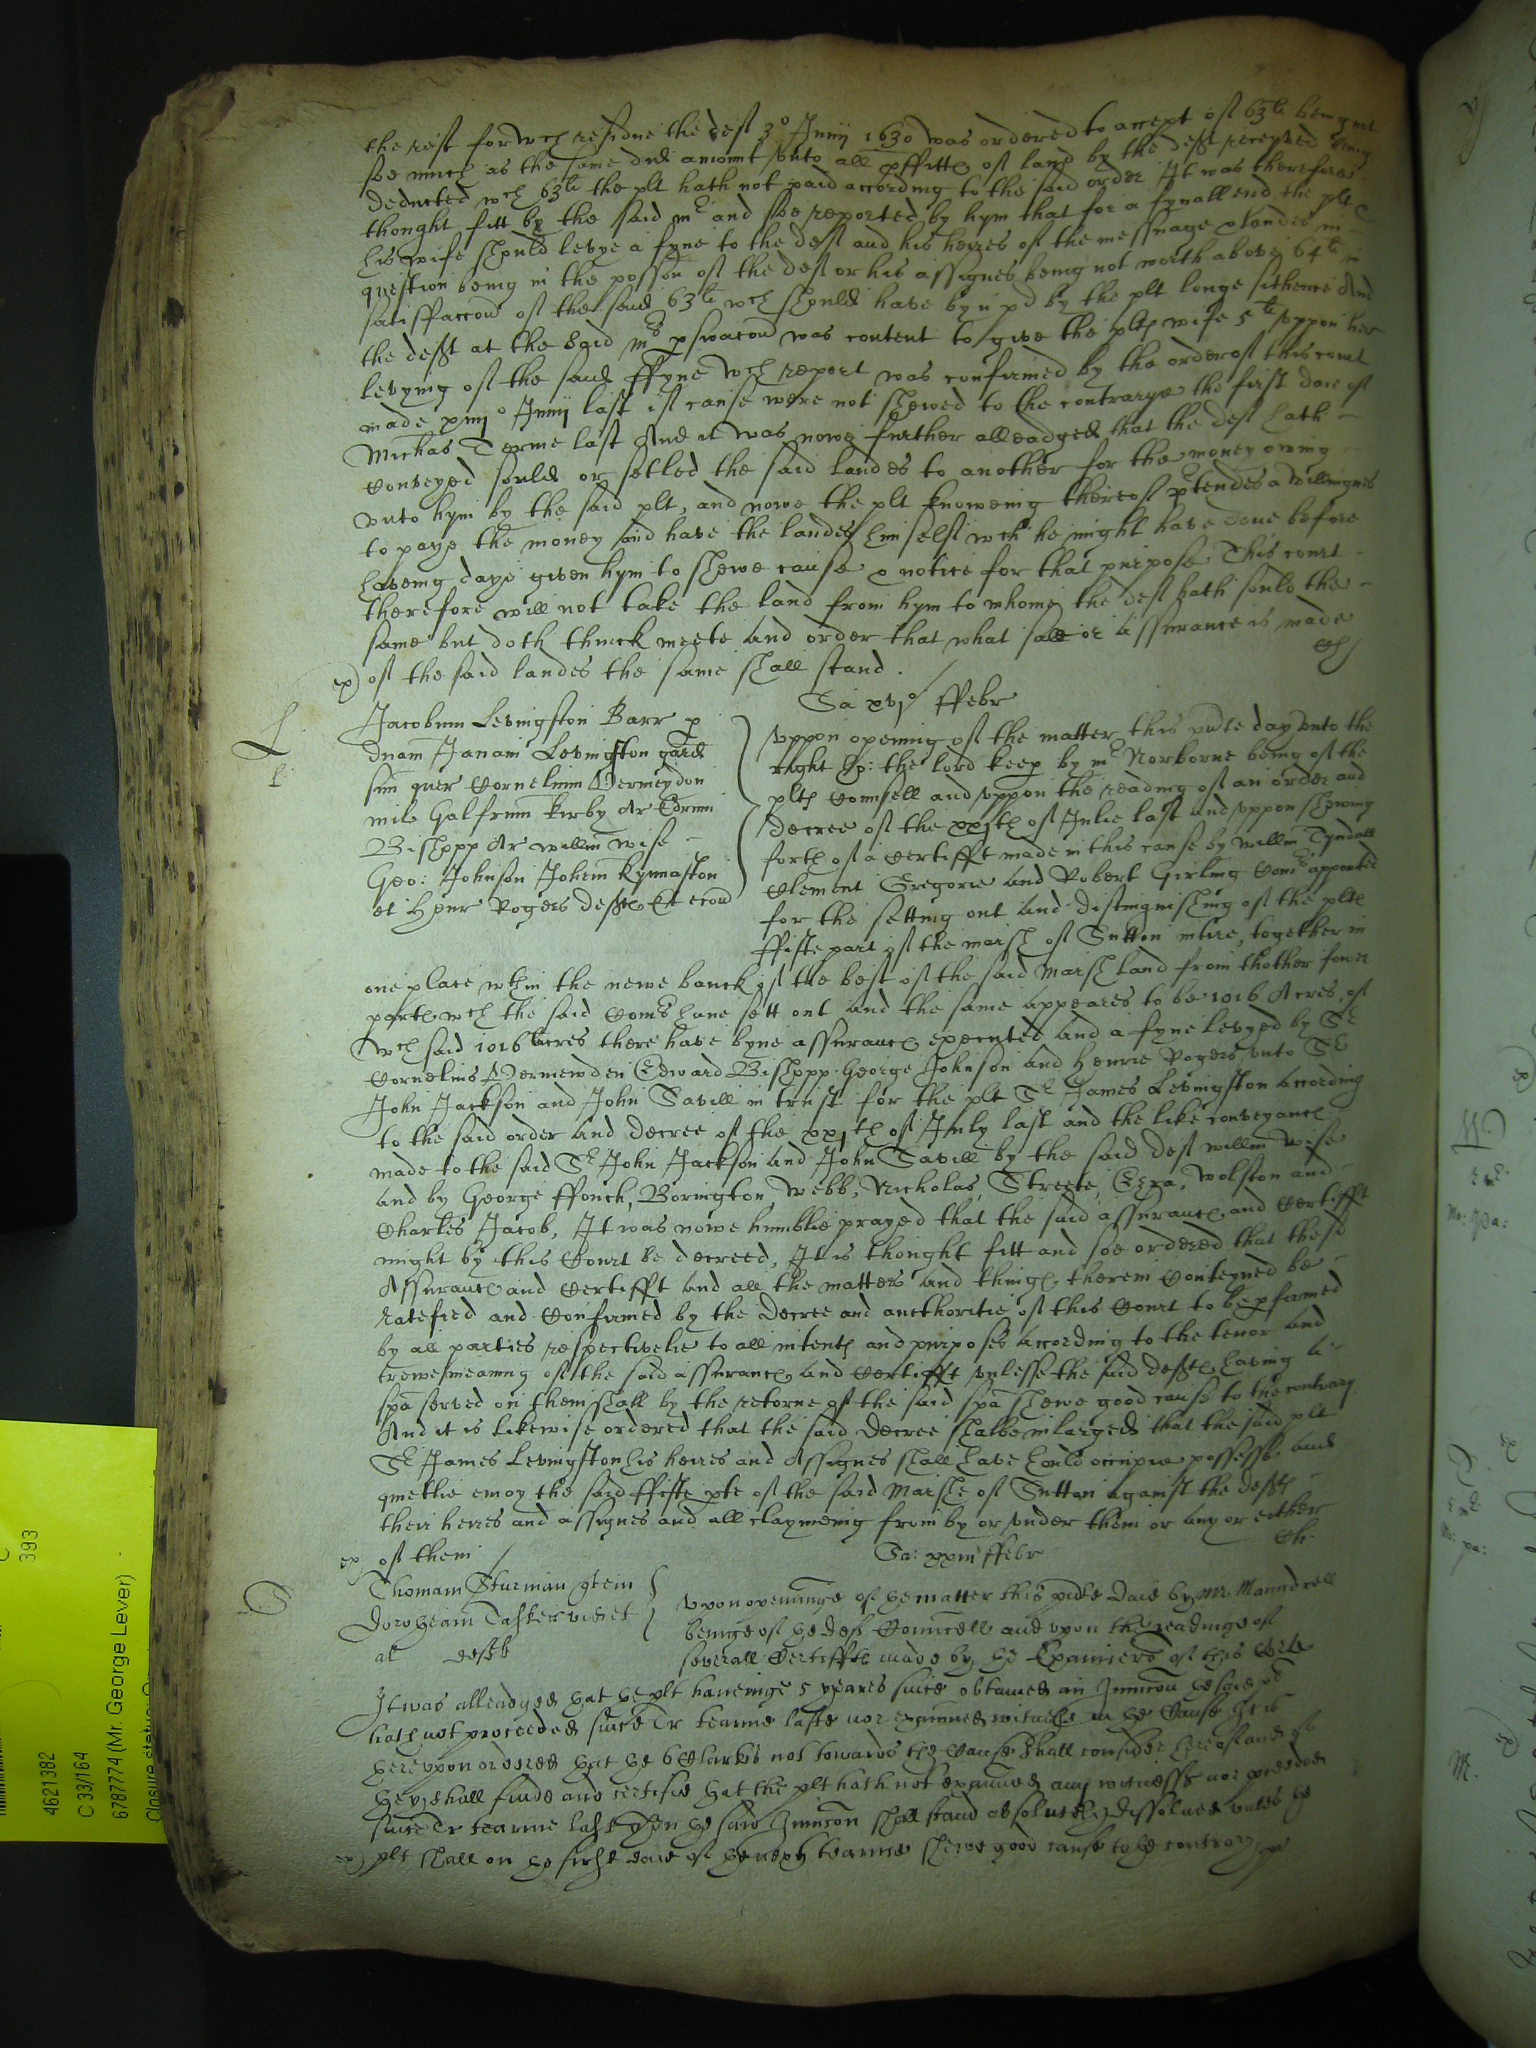 the rest for wch residue the deft 3o Junij 1630 was ordered to accept of 63li being not
soe much as the same did amount vnto all pffittes of land by the defft receyved being
deducted wch 63li the plt hath not paid according to the said order It was therefore
thought fitt by the said mr and soe reported by hym that for a fynall end the plt &
his wife should levye a fyne to the deft and his heires of the messuage & landes in
question being in the possion of the deft or his assignes being not worth above 64li in
satisffaccon of the said 63li wch should have byn pd by the plt longe sithence And
the defft at the said mrs pswacon was content to give the pltes wife 5li vppon her
levying of the said ffyne wch report was confirmed by the order of this court
made Junij last if cause were not shewed to the contrarye the first daie of
Michas Terme last And it was nowe further alleadged that the deft hath
Conveyed sould or setled the said landes to another for the money owing
vnto hym by the said plt, and nowe the plt knoweing thereof ptendes a willingnes
to paye the money and have the landes himself wch he might have done before
haveing daye given hym to shewe cause & notice for that purpose This court
therefore will not take the land from hym to whome the deft hath sould the
same but doth thinck meete and order that what sale or assurance is made
ex) of the said landes the same shall stand .
Sa xvjo ffebr
Jacobum Levingston Barr p
dnam Janam Levingston gard
sua quer Cornelium Vermeydon
mil Galfrum Kirby Ar Edrum
Bishopp Ar willm wise
Geo: Johnson Johem Kynnaston
et Henr Rogers defftes Et econ
vppon opening of the matter this pnte day vnto the
right Ho: the lord keep by mr Norborne being of the
pltes Counsell and vppon the reading of an order and
decree of the xxjth of Julie last and vppon shewing
forth of a Certifft made in this cause by willm Tyndall
Clement Gregorie and Robert Girling Comrs appointed
for the setting out and distinguishing of the pltes
ffifte part of the marsh of Sutton intire, together in
one place wthin the newe banck of the best of the said Marsh land from thother fower
partes wch the said Comrs have sett out and the same appeares to be 1016 Acres, of
wch said 1016 acres there have byne assurances executed and a fyne levyed by Sr
Cornelius Vermewden Edward Bishopp George Johnson and Henrie Rogers vnto Sr
John Jackson and John Savill in trust for the plt Sr James Levingston according
to the said order and decree of the xxjth of July last and the like conveyance
made to the said Sr John Jackson and John Savill by the said deft willm wise
and by George ffouch, Borington, Webb, Nicholas, Streete, Ezra, Wolston and
Charles Jacob, It was nowe humblie prayed that the said assurances and Certifft
might by this Court be decreed, It is thought fitt and soe ordered that these
Assurances and Certifft and all the matters and thinges therein Conteyned be
Ratefied and Confirmed by the decree and aucthoritie of this Court to be pformed
by all parties respectivelie to all intentes and purposes according to the tenor and
trewe meaning of the said assurances and Certifft vnlesse the said defftes having a
spa served on them shall by the retorne of the said spa shewe good cause to the contrary
And it is likewise ordered that the said decree shalbe inlarged that the said plt
Sr James Levingston his heires and Assignes shall have hould occupie possesse and
quietlie enioy the said ffifte pte of the said Marshe of Sutton against the defftes
their heires and assignes and all claymeing from by or vnder them or any or either
ex, of them
Sa: ffebr
Thomam Sturman
Dorotheam Tasker vid et
al defts
Vpon openinge of the matter this pnte daie by Mr. Maundrell
beinge of the defts Councell and vpon the readinge of
severall Certiffts made by the Examiners of this Corte
It was alleadged that the plt haueinge 5 yeares since obtained an Iniuncon the said plt
hath not proceeded since Tr tearme laste nor examined witnesses in the Cause It is
therevpon ordered that the 6 Clarkes not towards the Cause shall consider thereof and if
they shall finde and certifie that the plt hath not examined any witnesses nor proceeded
since Tr tearme last then the said Iniuncon shall stand absolutely dissolued vnles the
ex) plt shall on the first daie of the next tearme shewe good cause to the contrary
4621382
C 33/164
6787774 (Mr. George Lever)
393